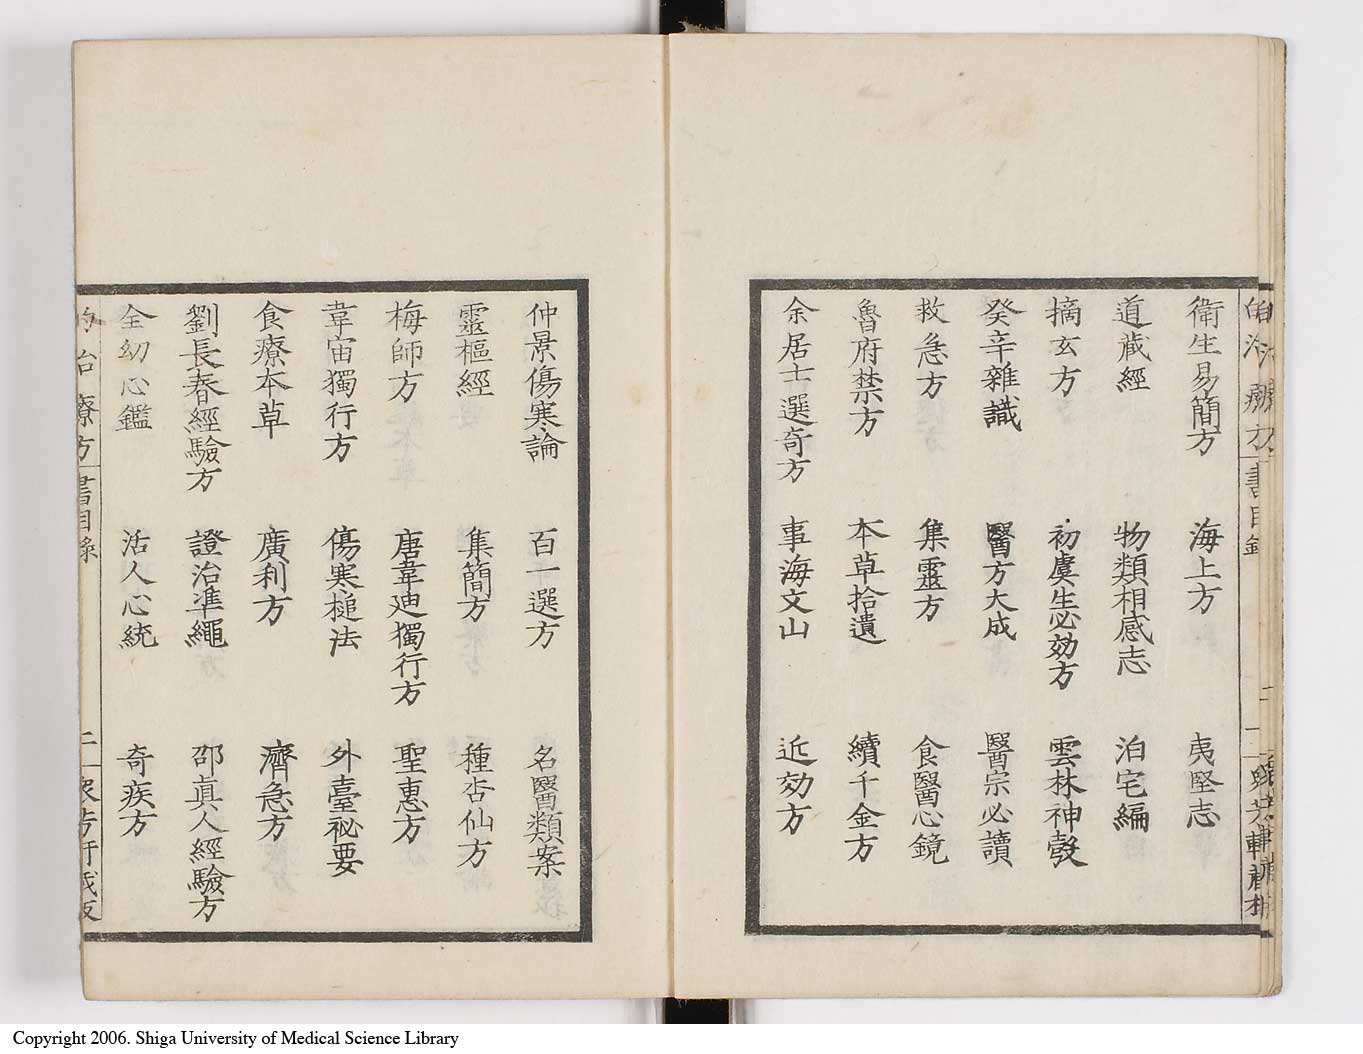 衛生易簡方 海上方 夷堅志
道藏經 物類相感志 泊宅編
摘玄方 初虞生必効方 雲林神彀
癸辛雜識 醫方大成 醫宗必讀
救急方 集靈方 食醫心鏡
魯府禁方 本草拾遺 續千金方
余居士選奇方 事海文山 近効方
仲景傷寒論 百一選方 名醫類案
靈樞經 集簡方 種杏仙方
梅師方 唐韋迪獨行方 聖惠方
韋宙獨行方 傷寒槌法 外臺祕要
食療本草 廣利方 濟急方
劉長春經驗方 證治準繩 邵眞人經驗方
全幼心鑑 活人心統 奇疾方
治療方 書目録 二
Copyright 2006. Shiga University of Medical Science Library